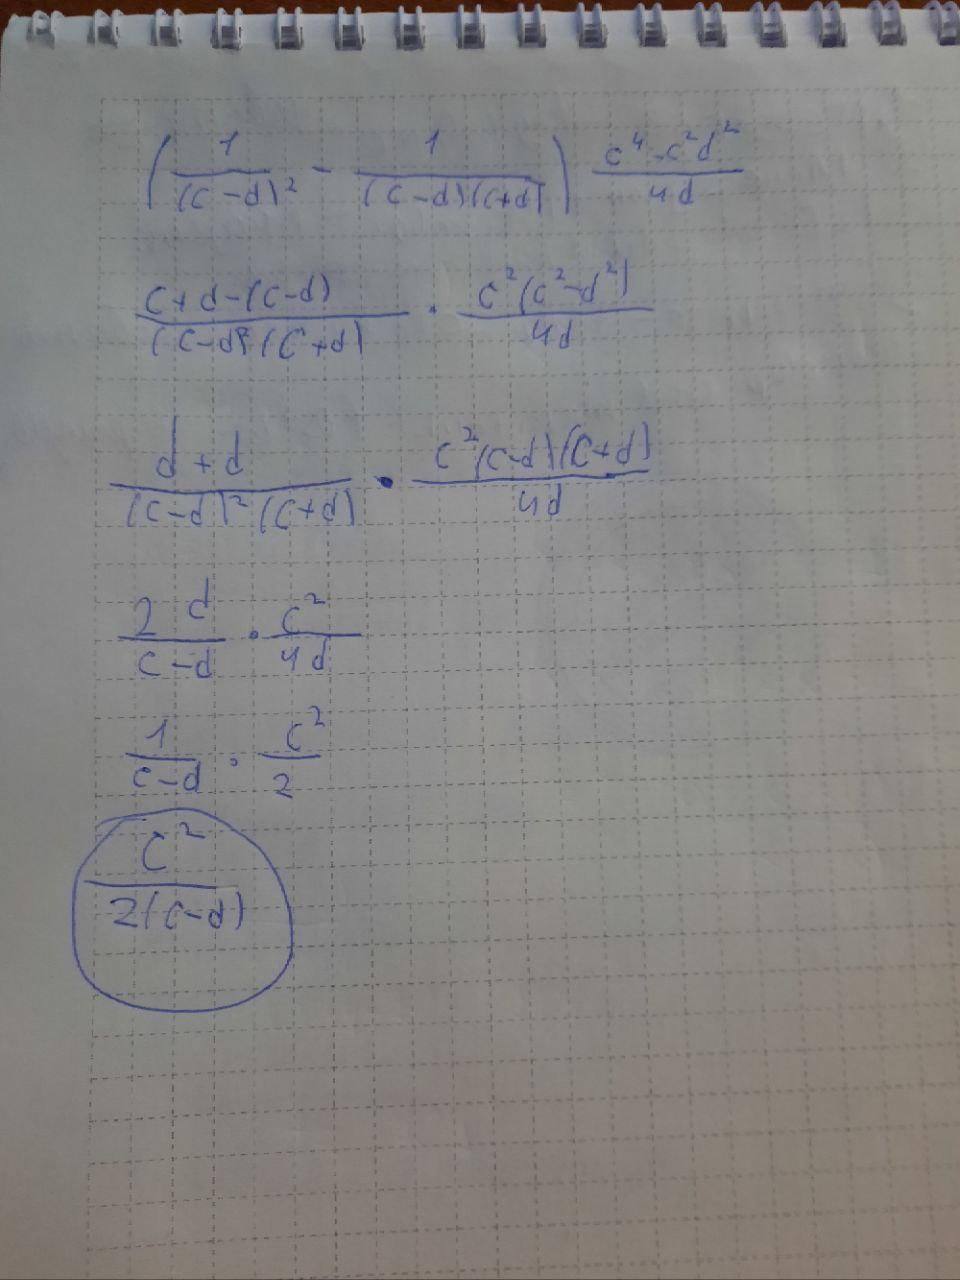 (1/(c-d)² - 1/((c-d)(c+d))) (c⁴-c²d²)/4d
(c+d-(c-d))/((c-d)²(c+d)) · c²(c²-d²)/4d
(d+d)/((c-d)²(c+d)) · c²(c-d)(c+d)/4d
2d/(c-d) · c²/4d
1/(c-d) · c²/2
c²/2(c-d)